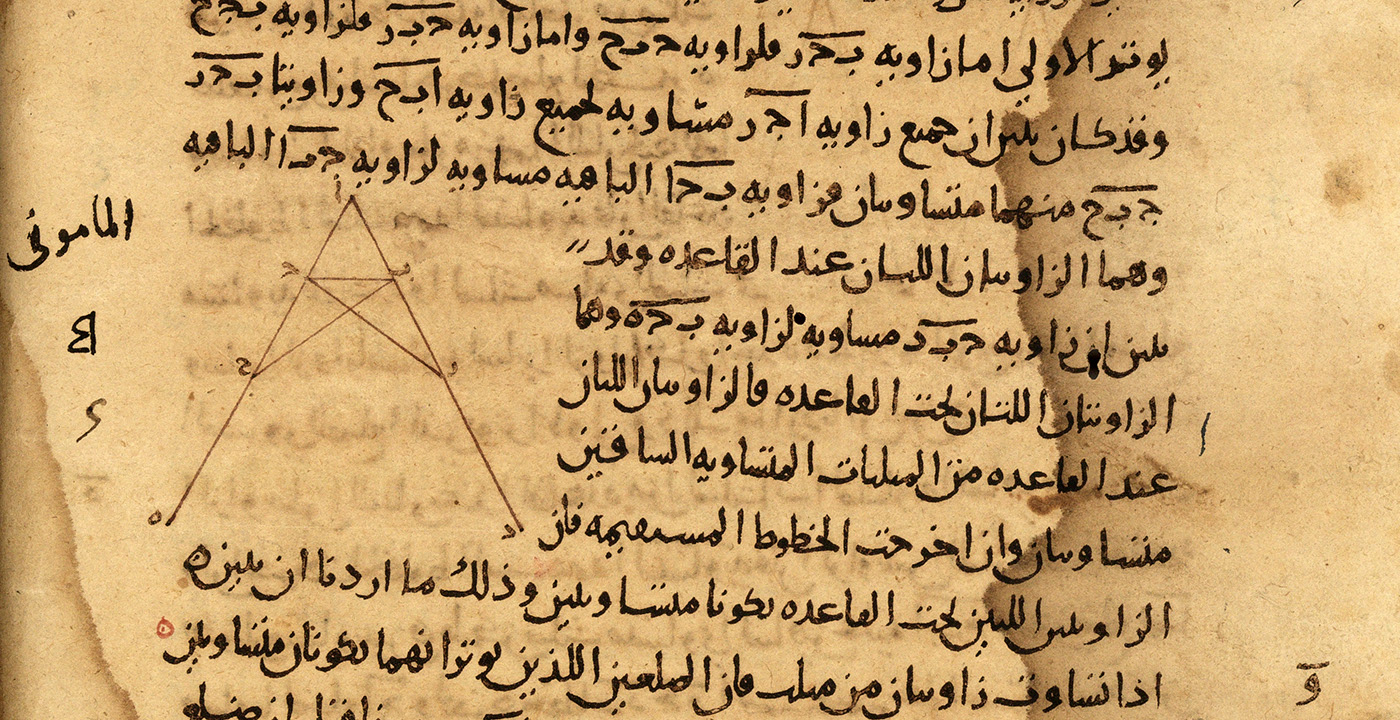 يوتر الاولى اما زاويه بجر فلزاويه جبح واما زاويه جبر فلزاويه بجح
وقد كان تبين ان جميع زاويه اجر مساويه لجميع زاويه ابح وزاويتا بجر
جبح منهما متساويتان فزاويه بجا الباقيه مساويه لزاويه جبا الباقيه
وهما الزاويتان اللتان عند القاعده وقد
المامونى
تبين ان زاويه جبد مساويه لزاويه بجه وهما
الزاويتان اللتان تحت القاعده فالزاويتان اللتان
عند القاعده من المثلثات المتساويه الساقين
متساويتان وان اخرجت الخطوط المستقيمه فان
الزاويتين اللتين تحت القاعده يكونا متساويتين وذلك ما اردنا ان نبين ه
و
اذا تساوت زاويتان من مثلث فان الضلعين اللذين يوترانهما يكونان متساويين
ا
ب
ج
ح
د
ه